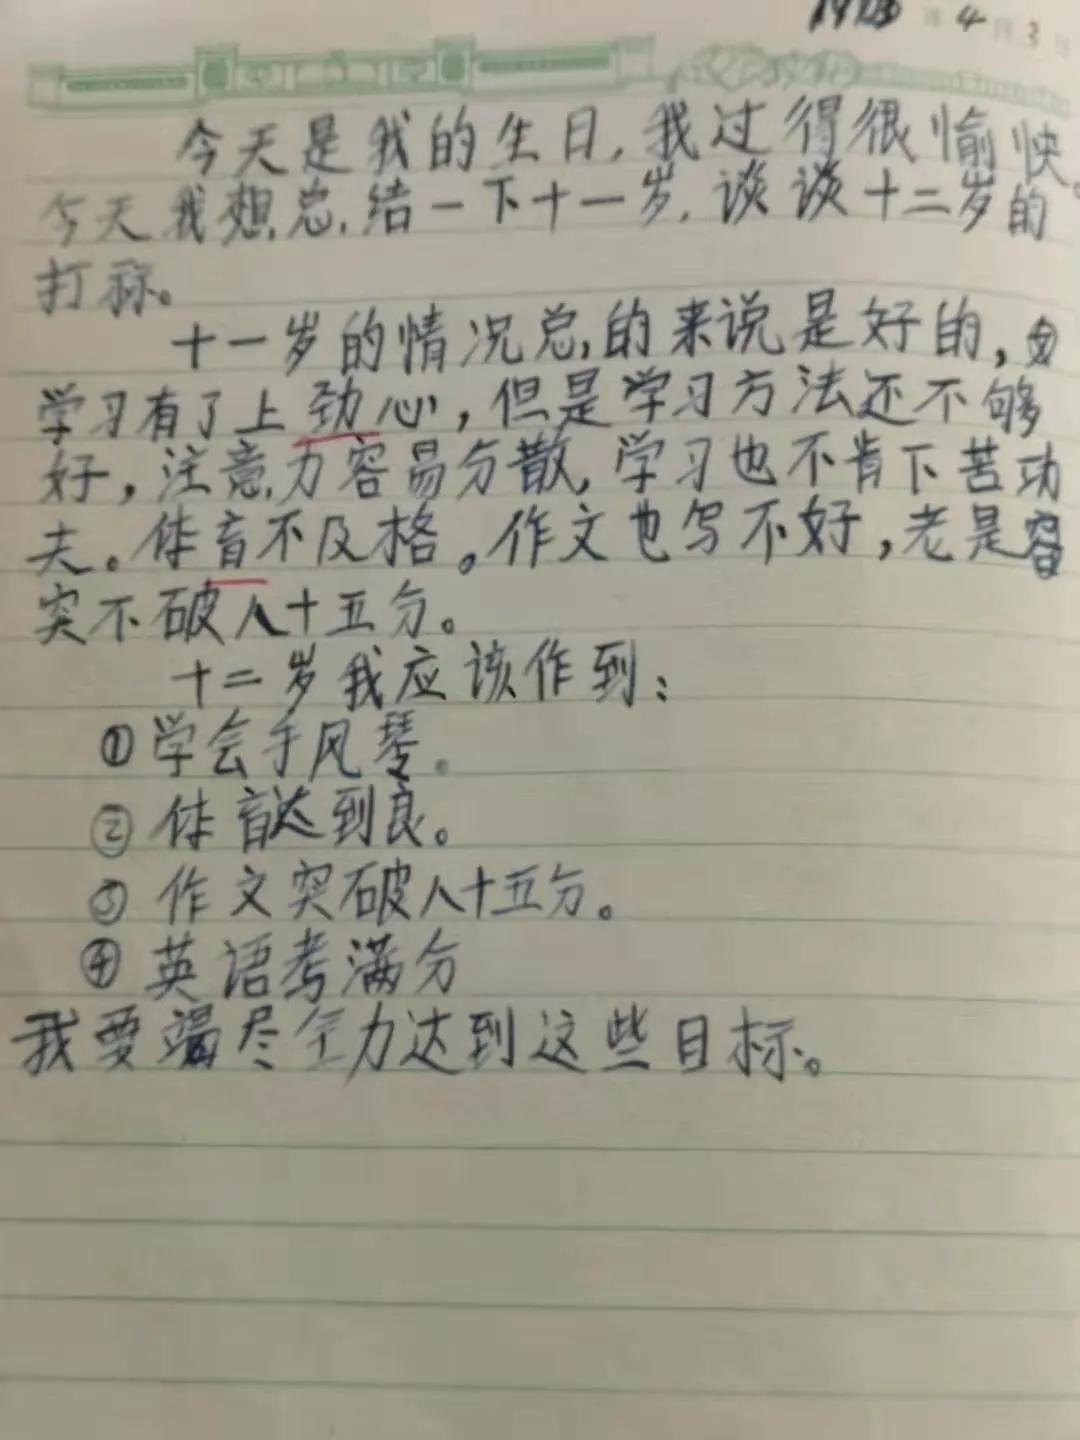 年4月3日
今天是我的生日，我过得很愉快。
今天我想总结一下十一岁，谈谈十二岁的
打称。
十一岁的情况总的来说是好的，
学习有了上劲心，但是学习方法还不够
好，注意力容易分散，学习也不肯下苦功
夫。体育不及格。作文也写不好，老是
突不破八十五分。
十二岁我应该作到：
①学会手风琴。
②体育达到良。
③作文突破八十五分。
④英语考满分
我要竭尽全力达到这些目标。